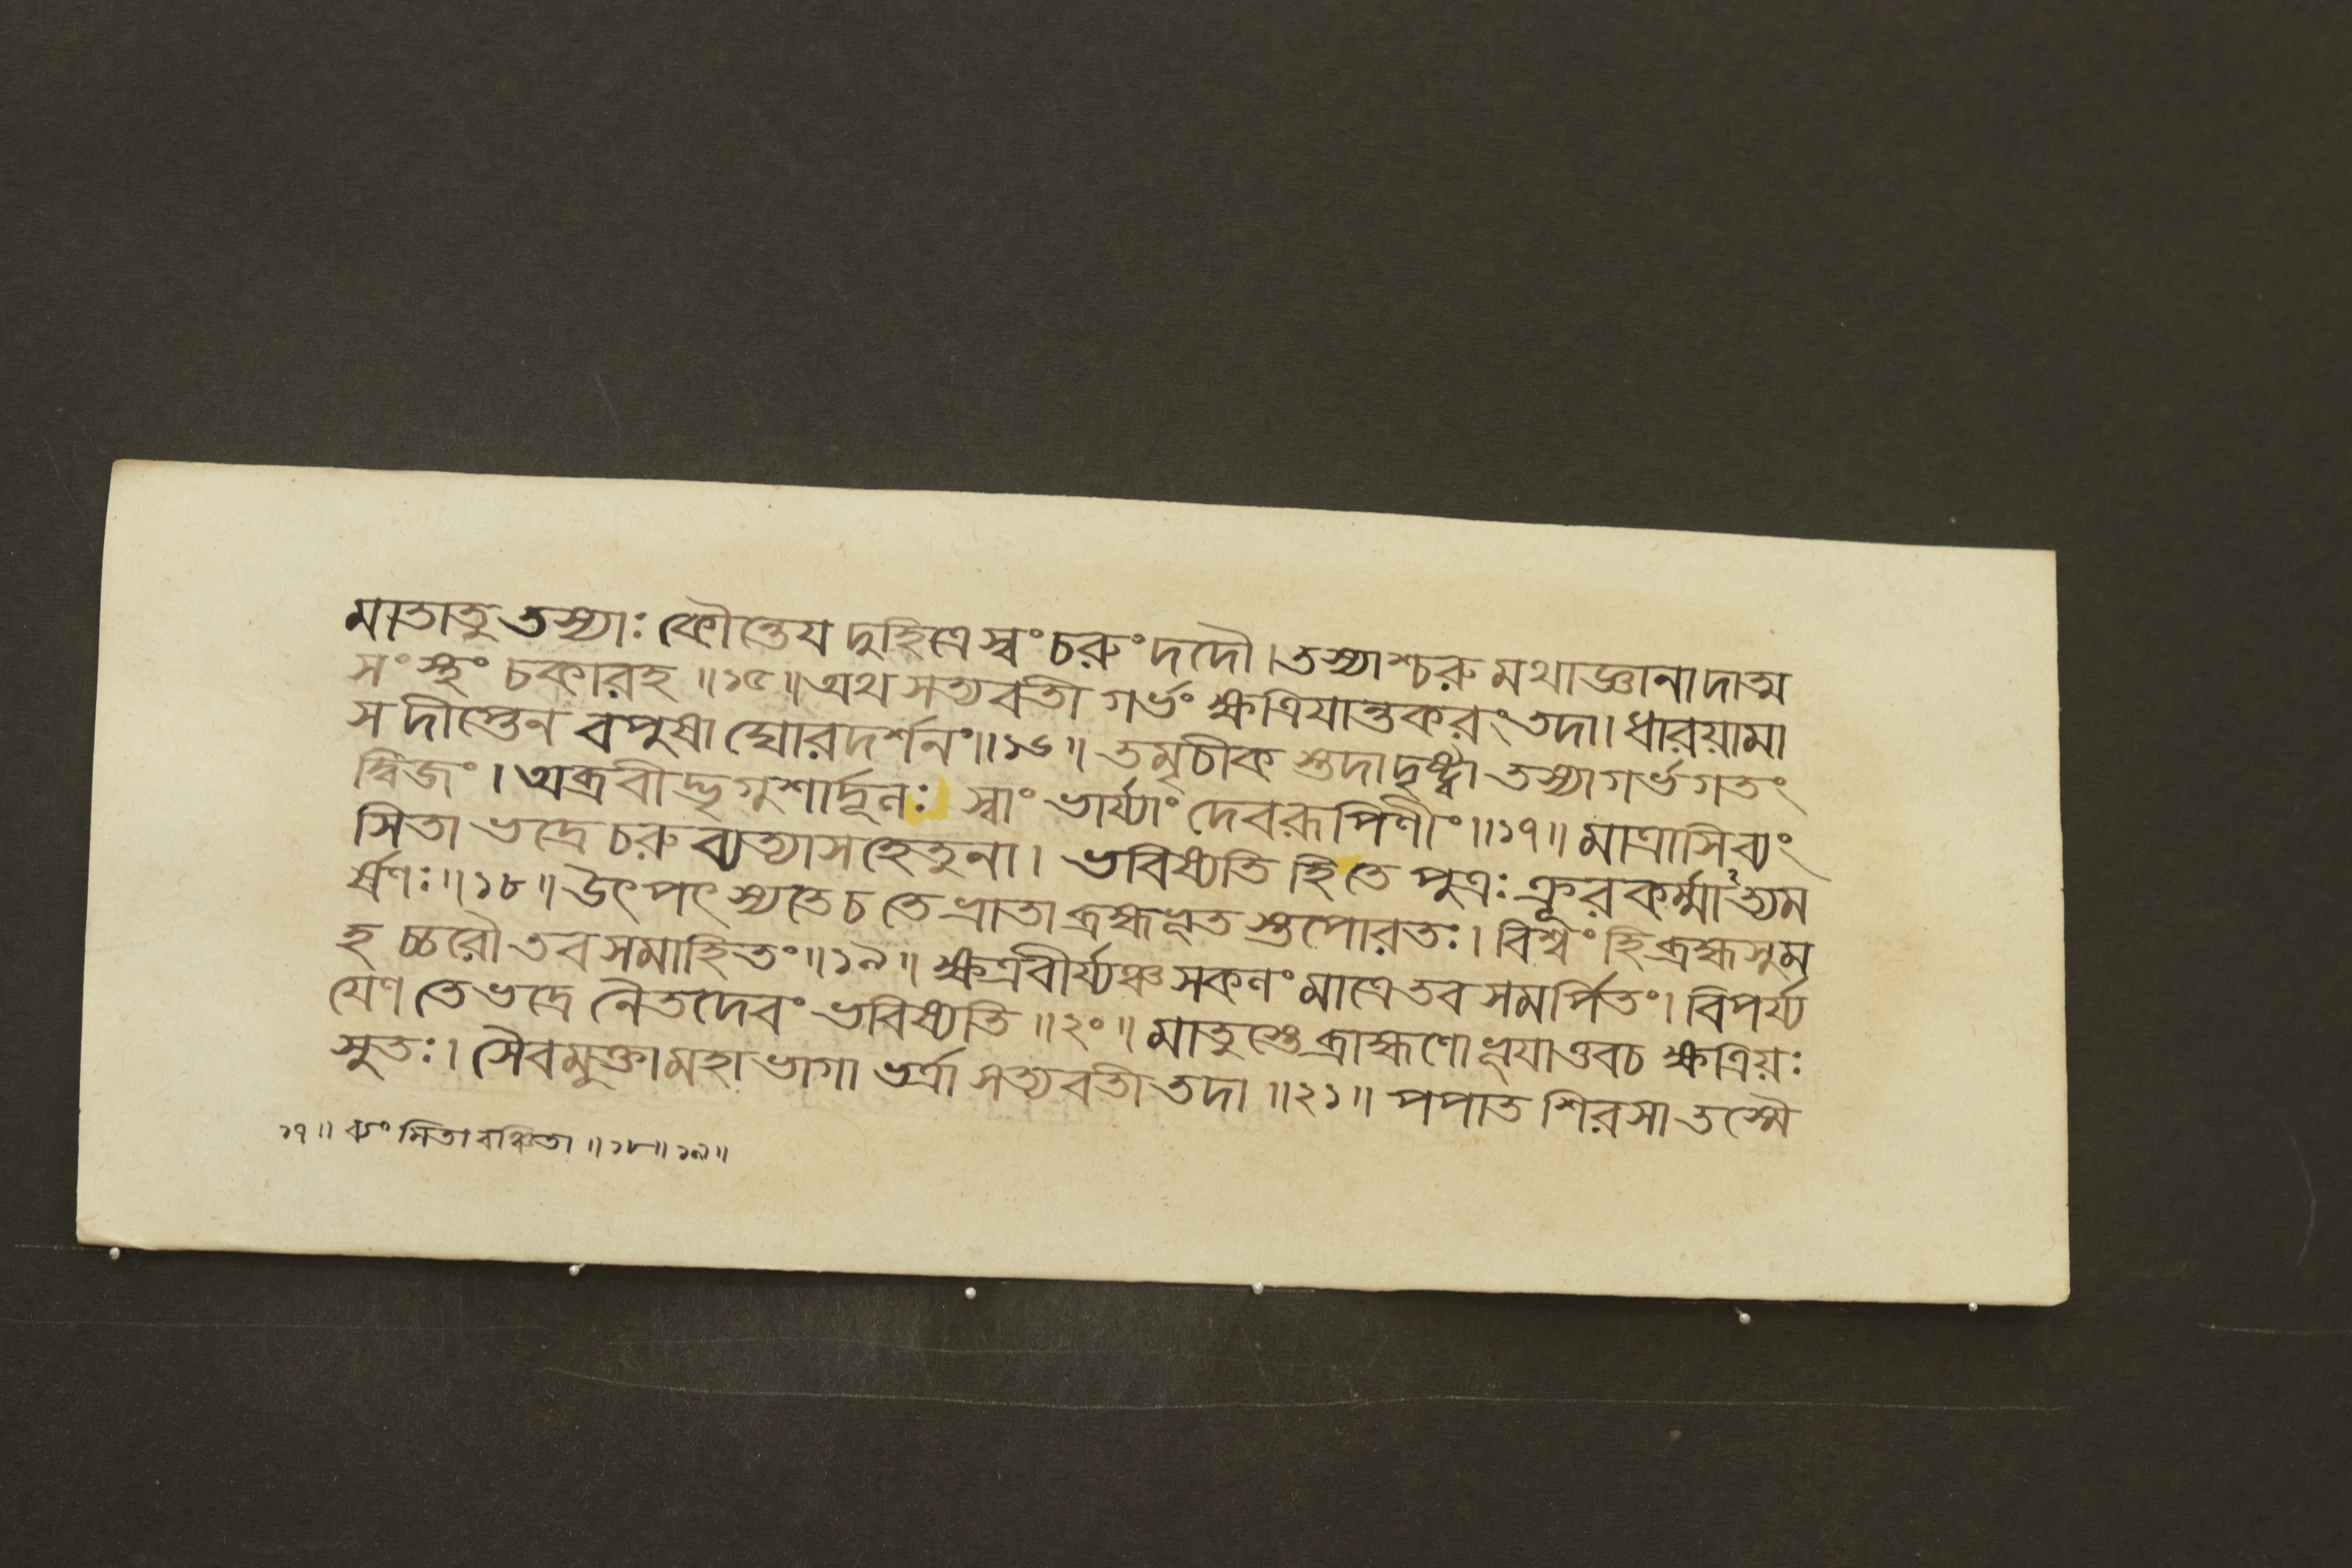 মাতাতু তস্যাঃ কৌন্তেয দুহিত্রে স্বং চরুং দদৌ। তস্যাশ্চরু মথাজ্ঞানাদাত্ম
সংস্থং চকারহ ॥১৫॥ অথ সত্যবতী গর্ভং ক্ষত্রিযান্তকরং তদা। ধারয়ামা
স দীপ্তেন বপুষা ঘোরদর্শনং॥১৬॥ তমৃচীক স্তদাদৃষ্ট্বা তস্যাগর্ভগতং
দ্বিজং। অব্রবীদ্ভৃগুশার্দূলঃ স্বাং ভার্য্যাং দেবরূপিণীং॥১৭॥ মাত্রাসিব্যং
সিতা ভদ্রে চরু ব্যত্যাস হেতুনা। ভবিষ্যতি হি তে পুত্রঃ ক্রূরকর্ম্মাঽত্যম
র্ষণঃ॥১৮॥ উৎপৎস্যতে চ তে ভ্রাতা ব্রহ্মভূত স্তপোরতঃ। বিশ্বং হি ব্রহ্মসুম
হ চ্চরৌ তব সমাহিতং॥১৯॥ ক্ষত্রবীর্য্যঞ্চ সকলং মাত্রে তব সমর্পিতং। বিপর্য্য
যেণ তে ভদ্রে নৈতদেবং ভবিষ্যতি ॥২০॥ মাতুস্তে ব্রাহ্মণো ভূযাত্তবচ ক্ষত্রিয়ঃ
সুতঃ। সৈবমুক্তামহাভাগা ভর্ত্রা সত্যবতী তদা ॥২১॥ পপাত শিরসা তস্মৈ
১৭॥ ব্যং সিতা বঞ্চিতা ॥১৮॥১৯॥